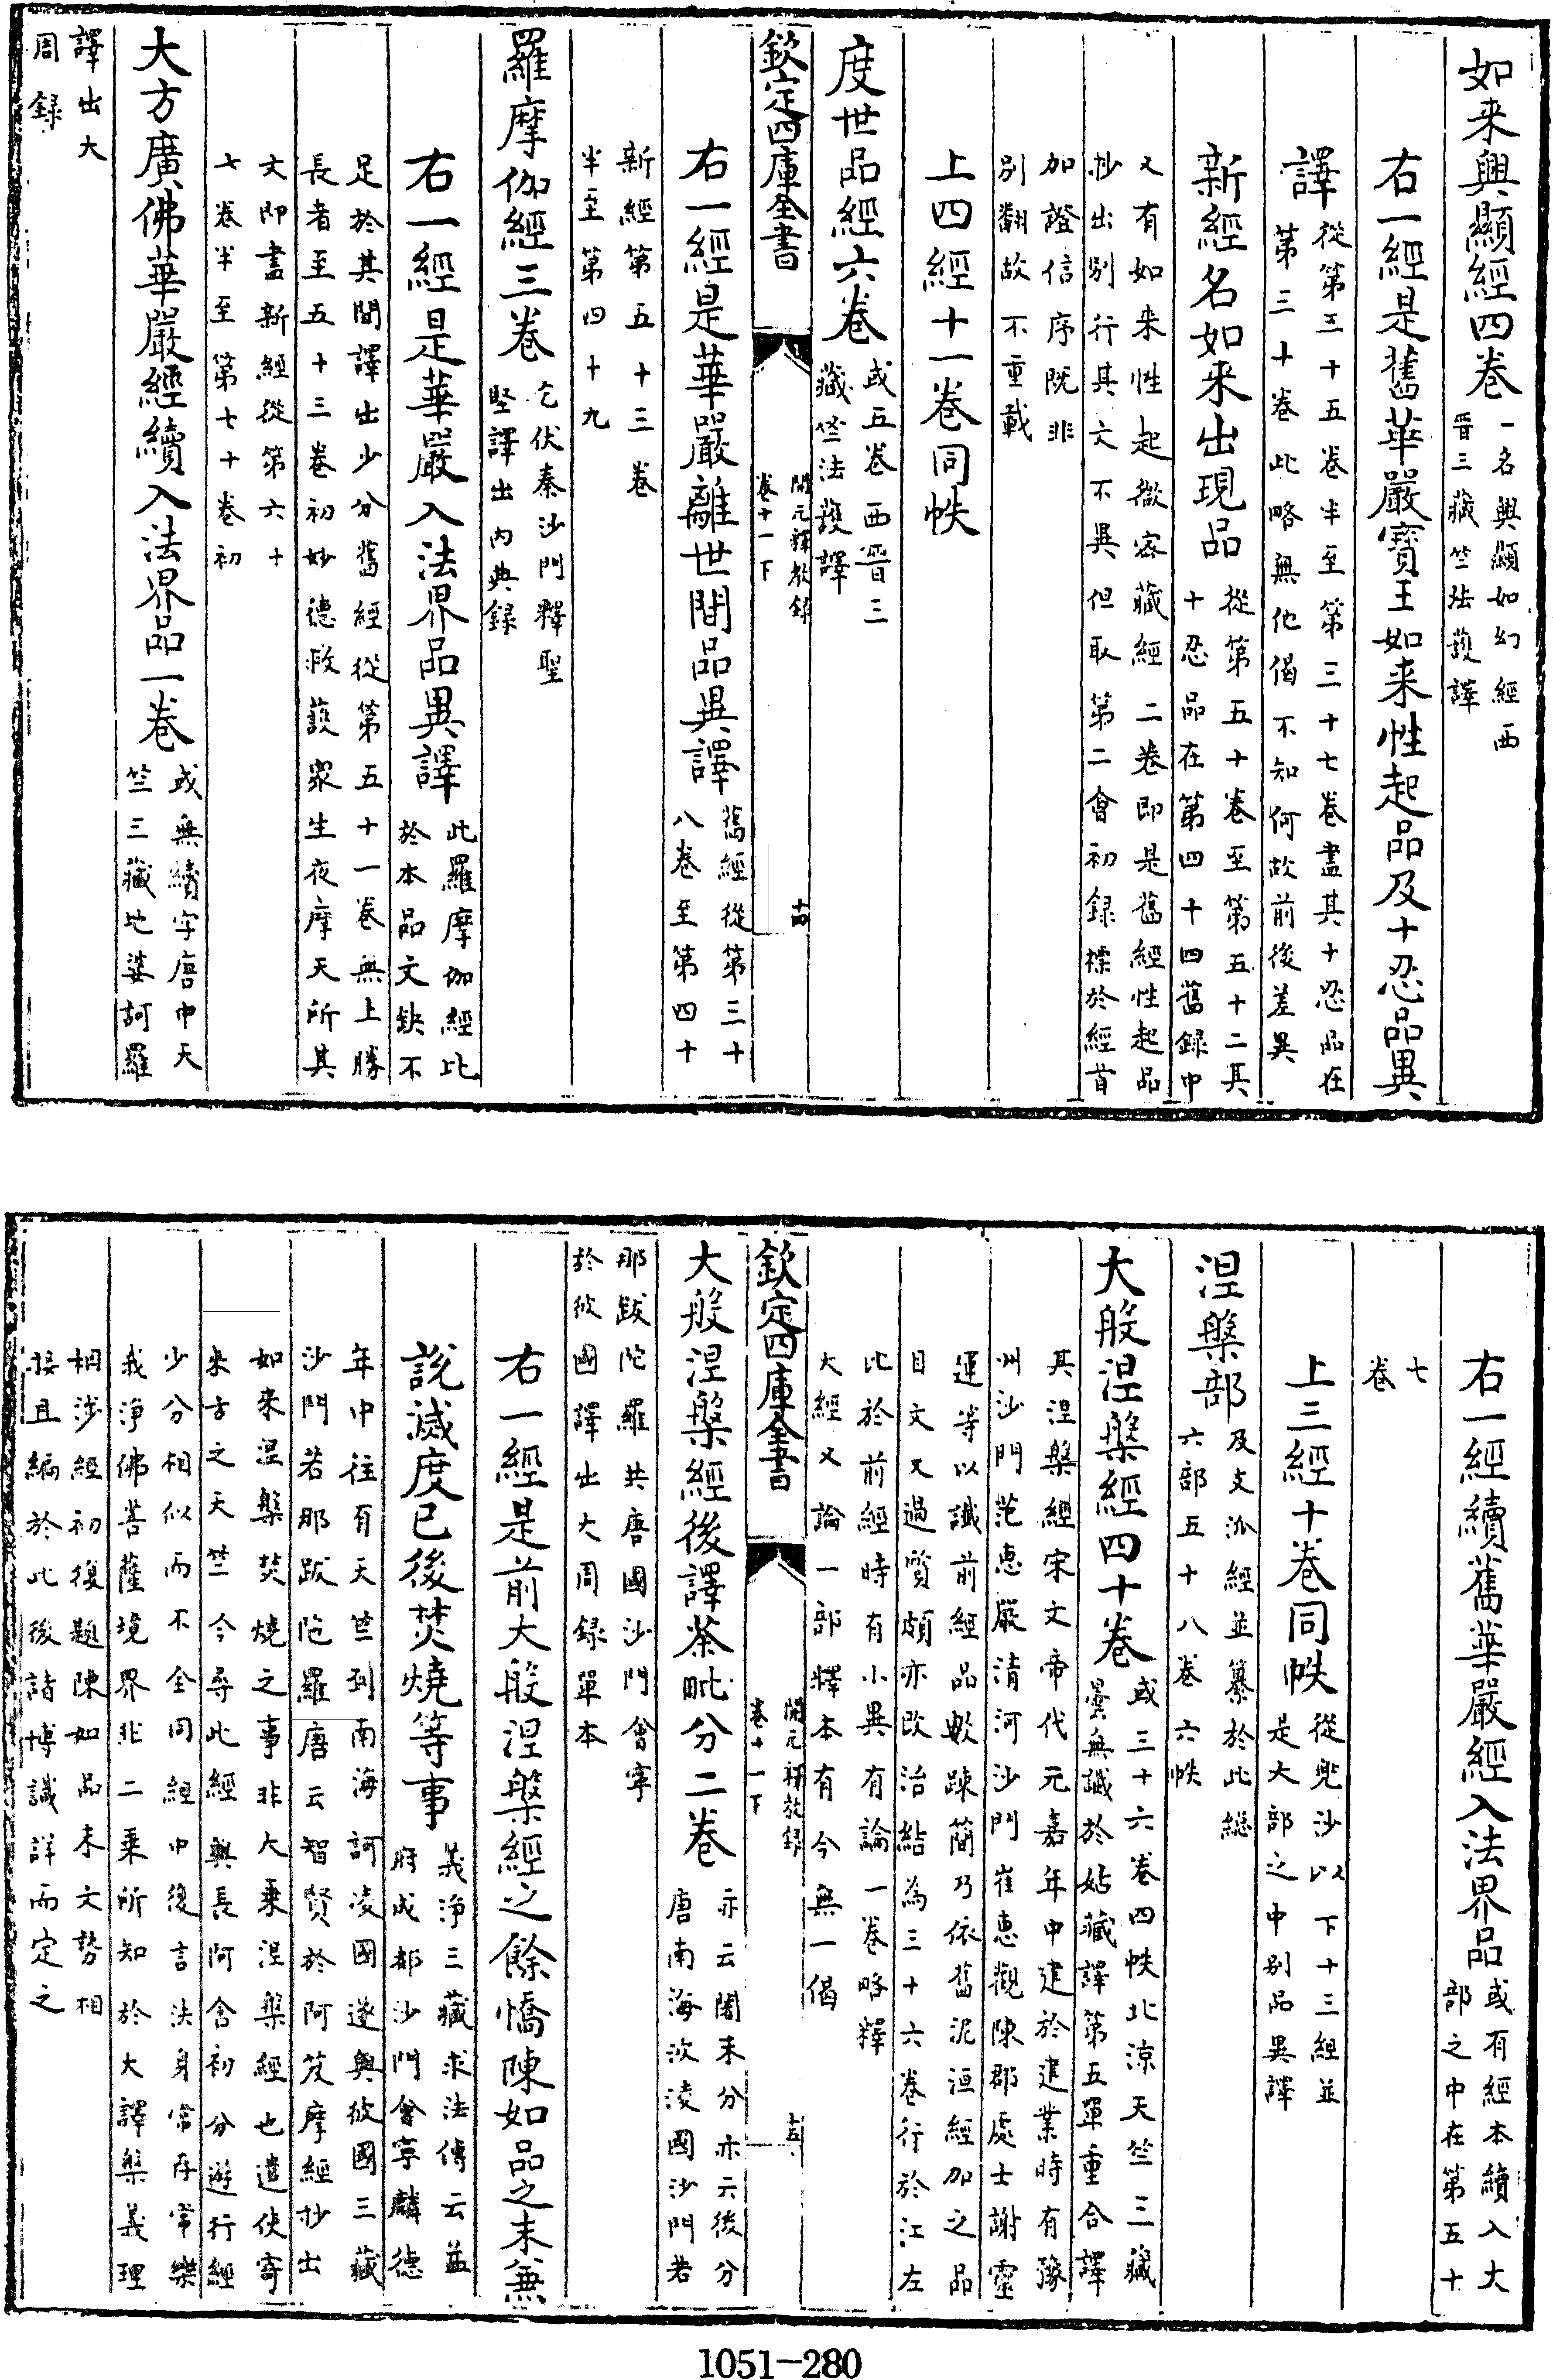 如来興顯經四卷一名興顯如幻經西晋三藏竺法護譯
右一經是舊華嚴寳王如来性起品及十忍品異
譯從第三十五卷半至第三十七卷盡其十忍品在第三十卷此略無他偈不知何故前後差異
新經名如来出現品從第五十卷至第五十二其十忍品在第四十四舊錄中
又有如来性起微密藏經二卷即是舊經性起品抄出别行其文不異但取第二會初録標於經首
加證信序既非别翻故不重載
上四經十一卷同帙
度世品經六卷或五卷西晋三藏竺法護譯
欽定四庫全書 開元釋教録卷十一下 十四
右一經是華嚴離世間品異譯舊經從第三十八卷至第四十
新經第五十三卷半至第四十九
羅摩伽經三卷乞伏秦沙門釋聖堅譯出内典録
右一經是華嚴入法界品異譯此羅摩伽經比於本品文缺不
足於其間譯出少分舊經從第五十一卷無上勝長者至五十三卷初妙德救護衆生夜摩天所其
文即盡新經從第六十七卷半至第七十卷初
大方廣佛華嚴經續入法界品一卷或無續字唐中天竺三藏地婆訶羅
譯出大周録
右一經續舊華嚴經入法界品或有經本續入大部之中在第五十
七卷
上三經十卷同帙從兜沙以下十三經並是大部之中别品異譯
涅槃部及支派經並纂於此總六部五十八卷六帙
大般涅槃經四十卷或三十六卷四帙北涼天竺三藏曇無讖於姑藏譯第五單重合譯
其涅槃經宋文帝代元嘉年中建於建業時有豫州沙門范惠嚴清河沙門崔惠觀陳郡處士謝靈
運等以讖前經品數踈簡乃依舊泥洹經加之品目文又過質頗亦改治結為三十六卷行於江左
比於前經時有小異有論一卷略釋大經又論一部釋本有今無一偈
欽定四庫全書 開元釋教録卷十一下 十五
大般涅槃經後譯荼毗分二卷亦云闍末分亦云後分唐南海波淩國沙門若
那跋陀羅共唐國沙門會寧於彼國譯出大周録單本
右一經是前大般涅槃經之餘憍陳如品之末兼
説滅度已後焚燒等事義浄三藏求法傳云益府成都沙門會寧麟德
年中往有天竺到南海訶淩國遂與彼國三藏沙門若那跋陀羅唐云智賢於阿芨摩經抄出
如来涅槃焚燒之事非大乗涅槃經也遣使寄来方之天竺今尋此經與長阿含初分遊行經
少分相似而不全同經中復言法身常存常樂我浄佛菩薩境界非二乗所知於大譯槃義理
相涉經初復題陳如品末文勢相接且編於此後諸博識詳而定之
1051-280